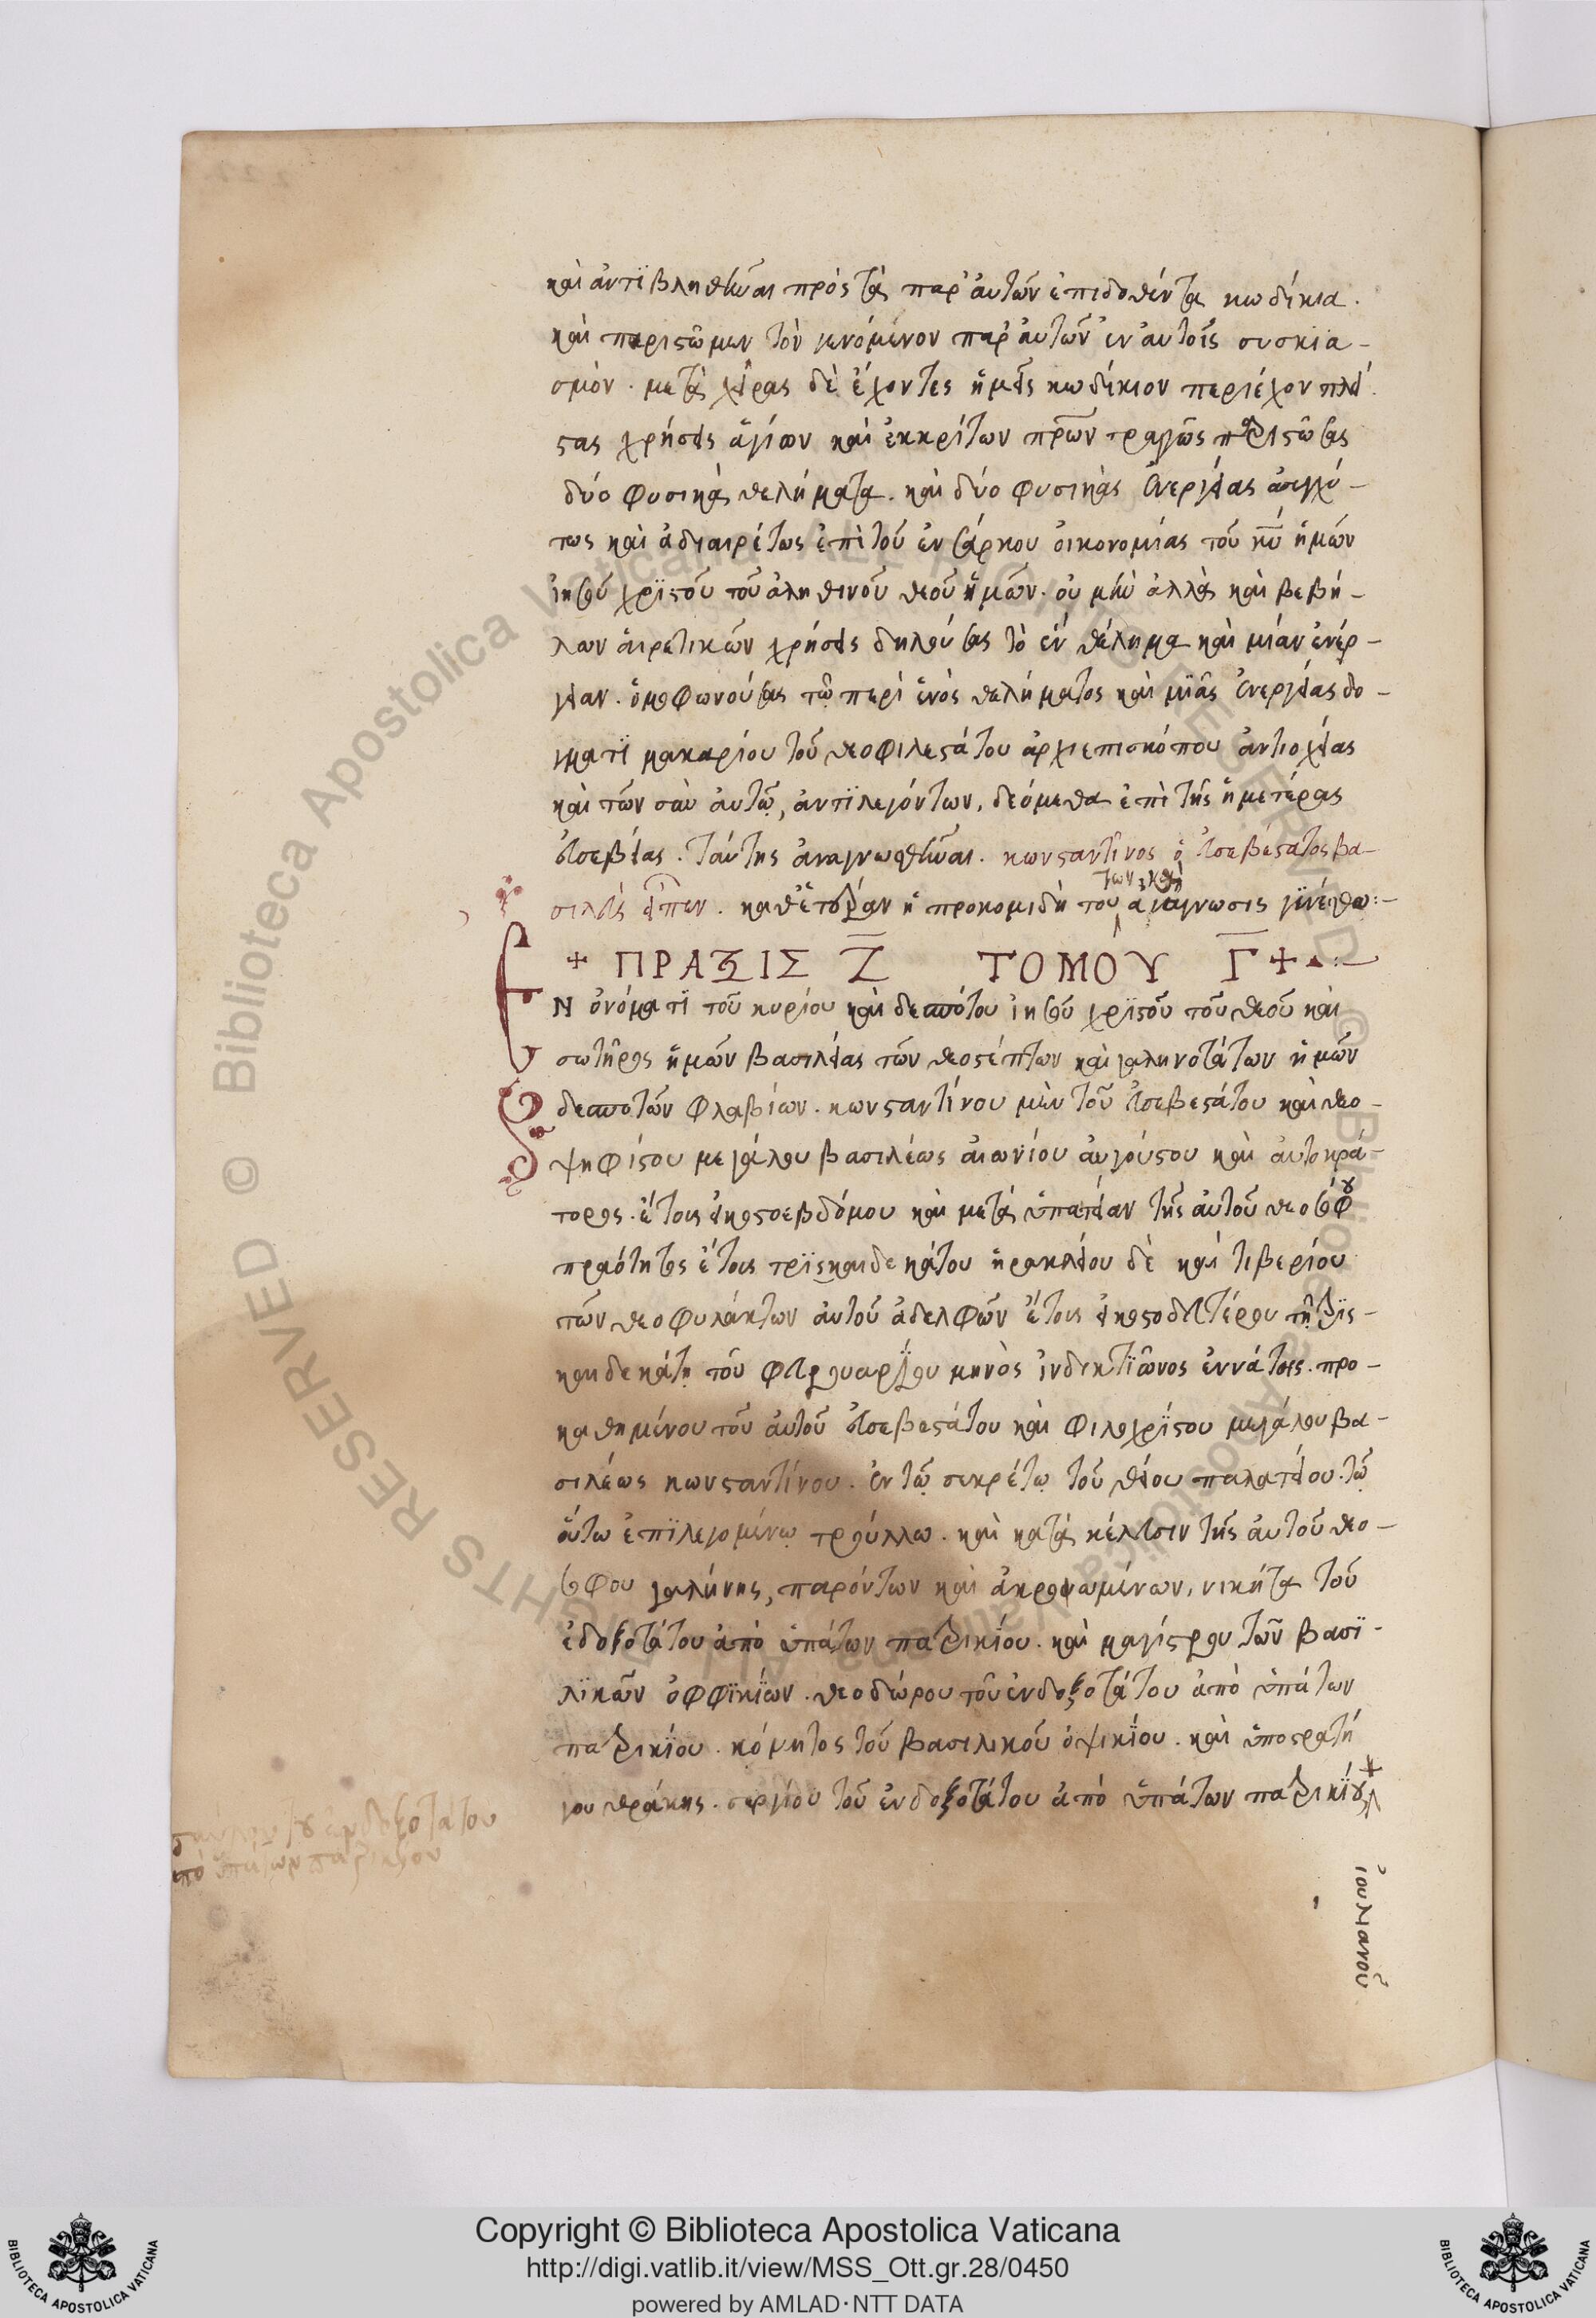 καὶ ἀντϊβληθῆναι πρὸς τὰ παρ' ἀυτῶν ἐπιδοθέντα κωδίκια.
καὶ παριστῶμεν τὸν γενόμενον παρ' ἀυτῶν ἐν ἀυτοῖς συσκϊα-
σμὸν. μετὰ χεῖρας δὲ ἔχοντες ἡμεῖς κωδίκιον περιέχον πλεί
στας χρήσεις ἁγίων καὶ ἐκκρίτων πρ̅ων τρανῶς παριστῶσας
δύο φυσικὰ θελήματα. καὶ δύο φυσικὰς ἐνεργείας ἀσυγχύ-
τως καὶ ἀδιαιρέτως ἐπὶ τοῦ ἐνσάρκου ὀικονομίας τοῦ κ̅υ ἡμῶν
ἰησοῦ χρϊστοῦ τοῦ ἀληθινοῦ θεοῦ ἡμῶν. οὐ μὴν ἀλλὰ καὶ βεβή-
λων ἁιρετικῶν χρήσεις δηλούσας τὸ ἓν θέλημα καὶ μίαν ἐνέρ-
γειαν. ὁμοφωνούσας τῶ περὶ ἑνὸς θελήματος καὶ μϊᾶς ἐνεργείας δο-
γματϊ μακαρίου τοῦ θεοφιλεστάτου ἀρχιεπισκόπου ἀντιοχείας
καὶ τῶν σὺν ἀυτῶ, ἀντϊλεγόντων, δεόμεθα ἐπὶ τῆς ἡμετέρας
ἐυσεβείας. ταύτης ἀναγνωσθῆναι. κωνσταντῖνος ὁ ἐυσεβέστατος βα-
σιλεὺς εἶπεν. καθ' ἑτέραν ἡ προκομιδὴ τοῦ ἀνάγνωσις γϊνέσθω:-
+ ΠΡΑΞΙΣ Ζ̅ ΤΟΜΟΥ Γ̅ +
ΕΝ ὀνόματϊ τοῦ κυρίου καὶ δεσπότου ἰησοῦ χρϊστοῦ τοῦ θεοῦ καὶ
σωτῆρος ἡμῶν βασιλείας τῶν θεοστέπτων καὶ γαληνοτάτων ἡμῶν
δεσποτῶν φλαβίων. κωνσταντίνου μὲν τοῦ ἐυσεβεστάτου καὶ θεο-
ψηφίστου μεγάλου βασιλέως ἀιωνίου ἀυγούστου καὶ ἀυτοκρά-
τορος. ἔτους εἰκοστοεβδόμου καὶ μετὰ ὑπατείαν τῆς ἀυτοῦ θεοσόφου
πραότητος ἔτους τρϊσκαιδεκάτου ἡρακλείου δὲ καὶ τιβερίου
τῶν θεοφυλάκτων ἀυτοῦ ἀδελφῶν ἔτους εἰκοστοδευτέρου τῆ τρϊς-
καιδεκάτη τοῦ φευρουαρϊου μηνὸς ἰνδικτϊῶνος ἐννάτης. προ-
καθημένου τοῦ ἀυτοῦ ἐυσεβεστάτου καὶ φιλοχρϊστου μεγάλου βα-
σιλέως κωνσταντίνου. ἐν τῶ σεκρέτω τοῦ θείου παλατείου. τῶ
ὅυτω ἐπϊλεγομένω τρούλλω. καὶ κατὰ κέλευσιν τῆς ἀυτοῦ θεο-
σόφου γαλήνης, παρόντων καὶ ἀκροωμένων, νικήτα τοῦ
ἐδοξοτάτου ἀπὸ ὑπάτων πατρικίου. καὶ μαγίστρου τῶν βασϊ-
λϊκῶν ὀφφϊκϊων. θεοδώρου τοῦ ἐνδοξοτάτου ἀπὸ ὑπάτων
πατρικϊου. κόμητος τοῦ βασιλικοῦ ὀψικϊου. καὶ ὑποστρατή
γου θράκης. σεργίου τοῦ ἐνδοξοτάτου ἀπὸ ὑπάτων πατρικϊου
ἐνδοξοτάτου
ἀπὸ ὑπάτων πατρικίου
ἰουλιανοῦ
© Biblioteca Apostolica Vaticana ALL RIGHTS RESERVED
Copyright © Biblioteca Apostolica Vaticana
http://digi.vatlib.it/view/MSS_Ott.gr.28/0450
powered by AMLAD·NTT DATA
BIBLIOTECA APOSTOLICA VATICANA
BIBLIOTECA APOSTOLICA VATICANA